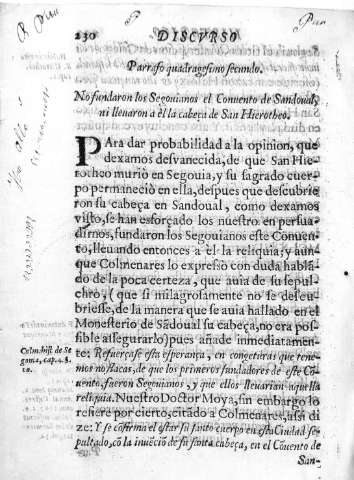 230 DISCVRSO
Parrafo quadragesimo secundo.
No fundaron los Segouianos el Conuento de Sandoual,
ni lleuaron a èl la cabeça de San Hierotheo.
PAra dar probabilidad a la opinion, que
dexamos desvanecida, de que San Hie-
rotheo muriò en Segouia, y su sagrado cuer-
po permaneciò en ella, despues que descubrie-
ron su cabeça en Sandoual, como dexamos
visto, se han esforçado los nuestro en persua-
dirnos, fundaron los Segouianos este Conuen-
to, lleuando entonces a èl la reliquia; y aun-
que Colmenares lo expresò con duda hablā-
do de la poca certeza, que auia de su sepul-
chrò, (que si milagrosamente no se descu-
briesse, de la manera que se auia hallado en el
Monesterio de Sādoual su cabeça, no era pos-
sible assegurarlo) pues añade inmediatamen-
te; Refuerçase esta esperança, en congeturas que tene-
mos no flacas, de que los primeros fundadores de este Cō-
uento, fueron Segouianos, y que ellos lleuarian aquella
reliquia. Nuestro Doctor Moya, sin embargo lo
refiere por cierto, citādo a Colmenares, assi di
ze: Y se cōfirma el estar su santo cuerpo en esta Ciudad se-
pultado, cō la inuēciō de su santa cabeça, en el Cōuento de
San-
Colm. hist. de Se
gom. 4. cap. 4. §.
10.